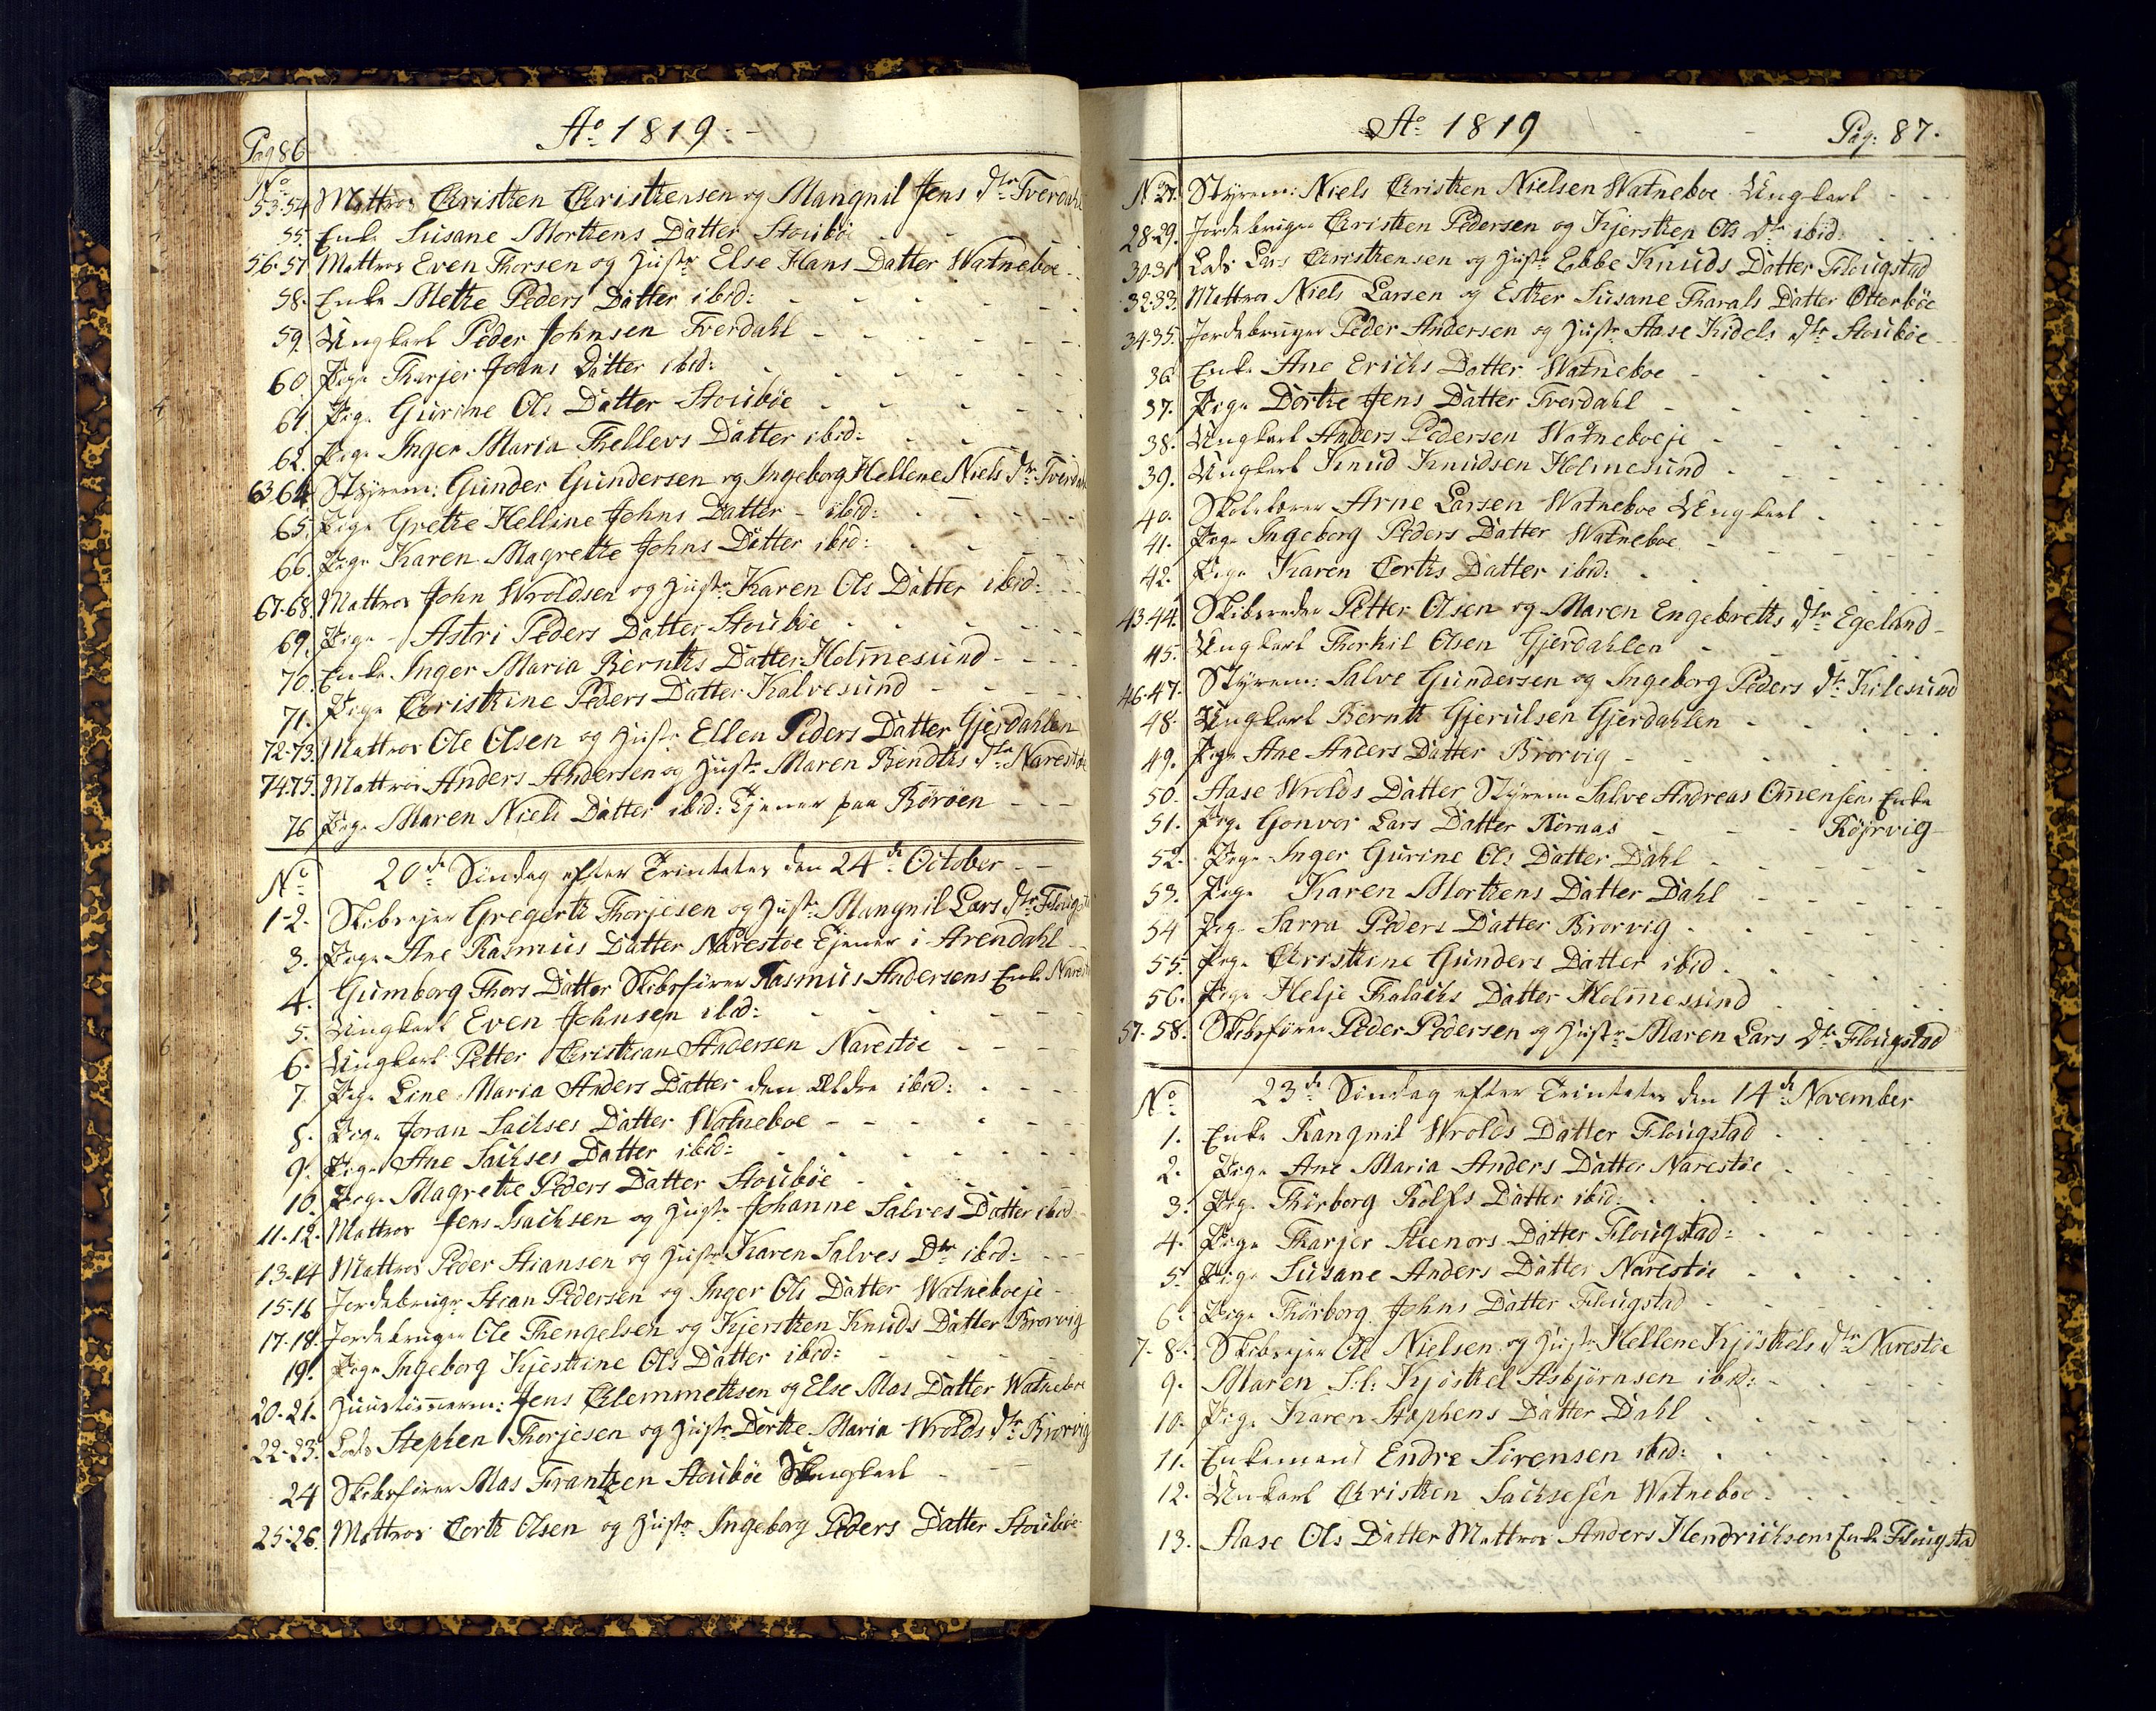 Pag 86
Ao 1819.
No
53.54 Mattros Christhen Christhensen og Mangnil Jens Dtr Tverdahl
55. Enke Susane Morthens Datter Stoubøe
56.57 Mattros Even Thorsen og Hustr Else Hans Datter Watneboe
58. Enke Methe Peders Datter ibid:
59. Ungkarl Peder Johnsen Tverdahl
60. Pige Tharjer Johns Datter ibid:
61. Pige Gurine Ols Datter Stoubøe
62. Pige Inger Maria Thellevs Datter ibid:
63.64 Styrem: Gunder Gundersen og Ingeborg Hellene Niels Dtr Tverdahl
65. Pige Grethe Helline Johns Datter ibid:
66. Pige Karen Magrethe Johns Datter ibid:
67.68. Mattros John Wroldsen og Hustr Karen Ols Datter ibid:
69. Pige Astri Peders Datter Stoubøe
70. Enke Inger Maria Bernths Datter Holmesund
71. Pige Christhine Peders Datter Kalvesund
72-73. Mattros Ole Olsen og Hustr Ellen Peders Datter Gjerdahlen
74.75. Mattros Anders Andersen og Hustr Maren Bendths Dtr Narestøe
76 Pige Maren Niels Datter ibid: Tjener paa Børøen
No 20de Søndag efter Trinitatis den 24de October
1-2. Skibsejer Gregerth Thorjesen og Hustr Mangnil Lars Dtr Flougstad
3. Pige Ane Rasmus Datter Narestøe Tjener i Arendahl
4. Gumborg Thors Datter Skibsfører Rasmus Andersens Enke Narestøe
5. Ungkarl Even Johnsen ibid:
6. Ungkarl Petter Christhian Andersen Narestøe
7. Pige Line Maria Anders Datter den Ældre ibid:
8. Pige Joran Sachses Datter Watneboe
9. Pige Ane Sachses Datter ibid:
10. Pige Magrethe Peders Datter Stoubøe
11-12. Mattros Jens Isachsen og Hustr Johanne Salves Datter ibid
13-14 Mattros Peder Stiansen og Hustr Karen Salves Dtr ibid:
15-16 Jordebrugr Stian Pedersen og Inger Ols Datter Watneboeje
17-18. Jordebruger Ole Thengelsen og Kjersthen Knuds Datter Brorvig
19. Pige Ingeborg Kjesthine Ols Datter ibid:
20-21. Huustømrem: Jens Clemmethsen og Else Mas Datter Watneboe
22-23. Lods Stephen Thorjesen og Hustr Dorthe Maria Wrolds Dtr Brorvig
24 Skibsfører Mas Frantzen Stoubøe Ungkarl
25-26. Mattros Corth Olsen og Hustr Ingeborg Peders Datter Stoubøe
Ao 1819
Pag: 87.
No 27. Styrem: Niels Christhen Nielsen Watneboe Ungkarl
28-29. Jordebruger Christhen Pedersen og Kjersthen Ols Dtr ibid:
30-31 Lods Lars Christhensen og Hustr Ebbe Knuds Datter Flougstad
32.33. Mattros Niels Larsen og Esther Susane Tharals Datter Otterbøe
34-35. Jordebruger Peder Andersen og Hustr Aase Kidels Dtr Stoubøe
36 Enke Ane Erichs Datter Watneboe
37. Pige Dorthe Jens Datter Tverdahl
38. Ungkarl Anders Pedersen Watneboeje
39. Ungkarl Knud Knudsen Holmesund
40. Skolelærer Arne Larsen Watneboe Ungkarl
41. Pige Ingeborg Peders Datter Watneboe
42. Pige Karen Corths Datter ibid:
43-44. Skibsreder Petter Olsen og Maren Engebreths Dtr Egeland
45. Ungkarl Thorkil Olsen Gjerdahlen
46-47. Styrem: Salve Gundersen og Ingeborg Peders Dtr Kilesund
48. Ungkarl Bernth Gjerulsen Gjerdahlen
49. Pige Ane Anders Datter Brorvig
50. Aase Wrolds Datter Styrem Salve Andreas Omensens Enke
51. Pige Gonvor Lars Datter Bornas Røjrvig
52. Pige Inger Gurine Ols Datter Dahl
53. Pige Karen Morthens Datter Dahl
54 Pige Sarra Peders Datter Brorvig
55. Pige Christhine Gunders Datter ibid.
56. Pige Helje Thalachs Datter Holmesund
57-58. Skibsfører Peder Pedersen og Hustr Maren Lars Dtr Flougstad
No 23de Søndag efter Trinitatis den 14de November
1. Enke Rangnil Wrolds Datter Flougstad
2. Pige Ane Maria Anders Datter Narestøe
3. Pige Thorborg Rolfs Datter ibid:
4. Pige Tharjer Steenors Datter Flougstad:
5. Pige Susane Anders Datter Narestøe
6. Pige Thorborg Johns Datter Flougstad
7-8. Skibsejer Ole Nielsen og Hustr Hellene Kjøsthels Dtr Narestøe
9. Maren S:l: Kjøsthel Asbjørnsen ibid:
10. Pige Karen Stephens Datter Dahl
11. Enkemand Endre Sørensen ibid:
12. Unkarl Christhen Sachsesen Watneboe
13. Aase Ols Datter Mattros Anders Hendrichsens Enke Flougstad